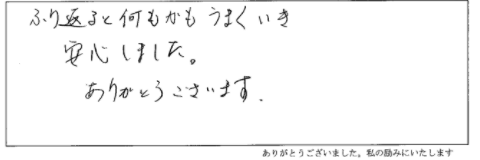 ふり返ると何もかもうまくいき
安心しました。
ありがとうございます.
ありがとうございました。私の励みにいたします